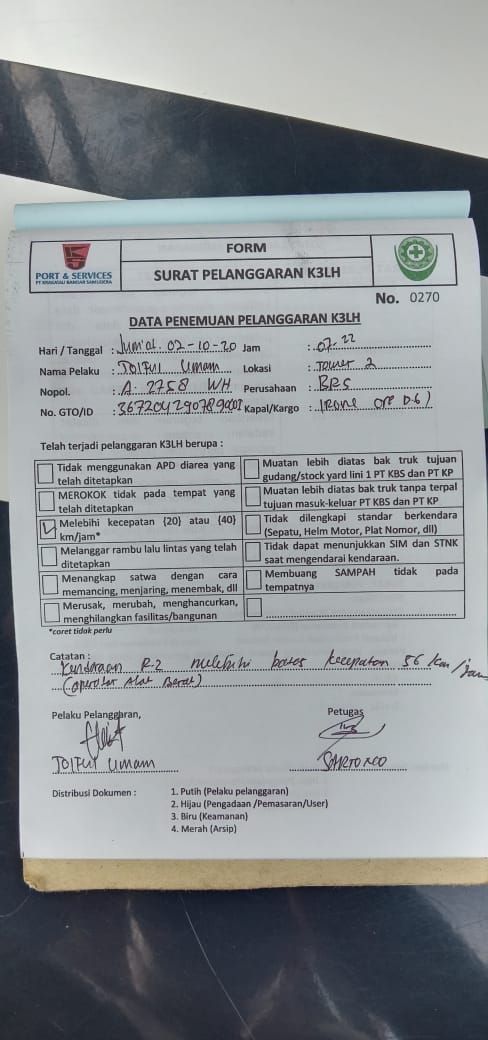 PORT & SERVICES
PT KRAKATAU BANDAR SAMUDERA
FORM
SURAT PELANGGARAN K3LH
No. 0270
DATA PENEMUAN PELANGGARAN K3LH
Hari / Tanggal : Jum'at. 02-10-20 Jam : 07.22
Nama Pelaku : Umam Lokasi : Tower 2
Nopol. : A. 2758 WH Perusahaan : BRS
No. GTO/ID : Kapal/Kargo : (Rone ore D.6)
Telah terjadi pelanggaran K3LH berupa :
Tidak menggunakan APD diarea yang telah ditetapkan
Muatan lebih diatas bak truk tujuan gudang/stock yard lini 1 PT KBS dan PT KP
MEROKOK tidak pada tempat yang telah ditetapkan
Muatan lebih diatas bak truk tanpa terpal tujuan masuk-keluar PT KBS dan PT KP
Melebihi kecepatan {20} atau {40} km/jam*
Tidak dilengkapi standar berkendara (Sepatu, Helm Motor, Plat Nomor, dll)
Melanggar rambu lalu lintas yang telah ditetapkan
Tidak dapat menunjukkan SIM dan STNK saat mengendarai kendaraan.
Menangkap satwa dengan cara memancing, menjaring, menembak, dll
Membuang SAMPAH tidak pada tempatnya
Merusak, merubah, menghancurkan, menghilangkan fasilitas/bangunan
*coret tidak perlu
Catatan :
Kendaraan R-2 melebihi batas kecepatan 56 km/jam
(operator Alat Berat)
Pelaku Pelanggaran,
Petugas
Umam
Distribusi Dokumen :
1. Putih (Pelaku pelanggaran)
2. Hijau (Pengadaan /Pemasaran/User)
3. Biru (Keamanan)
4. Merah (Arsip)